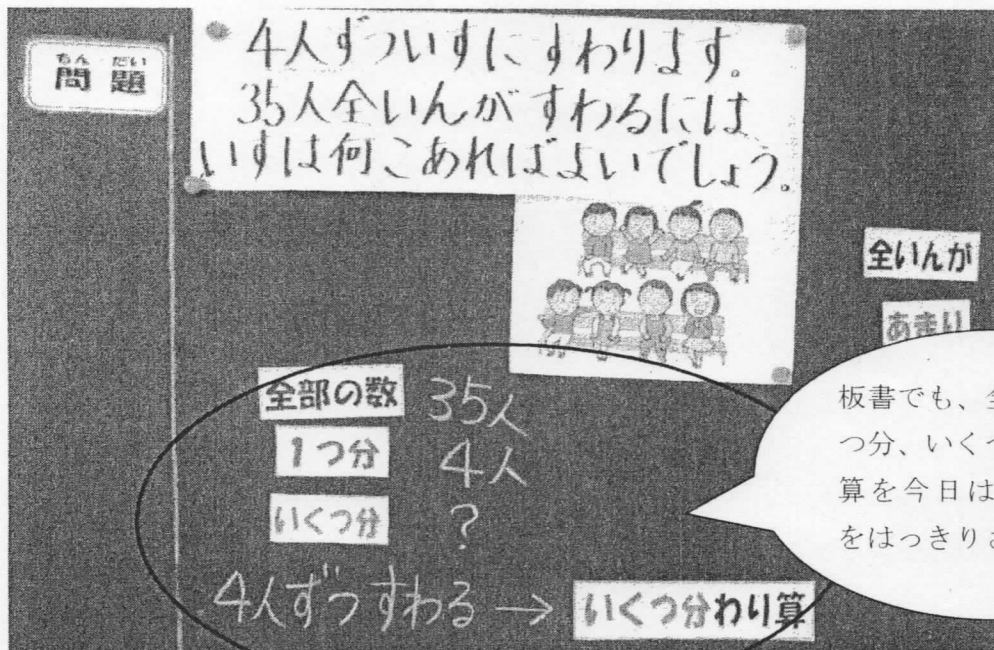 もん だい
問 題
4人ずついすに すわります。
35人全いんが すわるには
いすは何こあればよいでしょう。
全いんが
あまり
全部の数 35人
1つ分 4人
いくつ分 ?
4人ずつすわる → いくつ分わり算
板書でも、全
つ分、いくつ
算を今日は
をはっきりさ